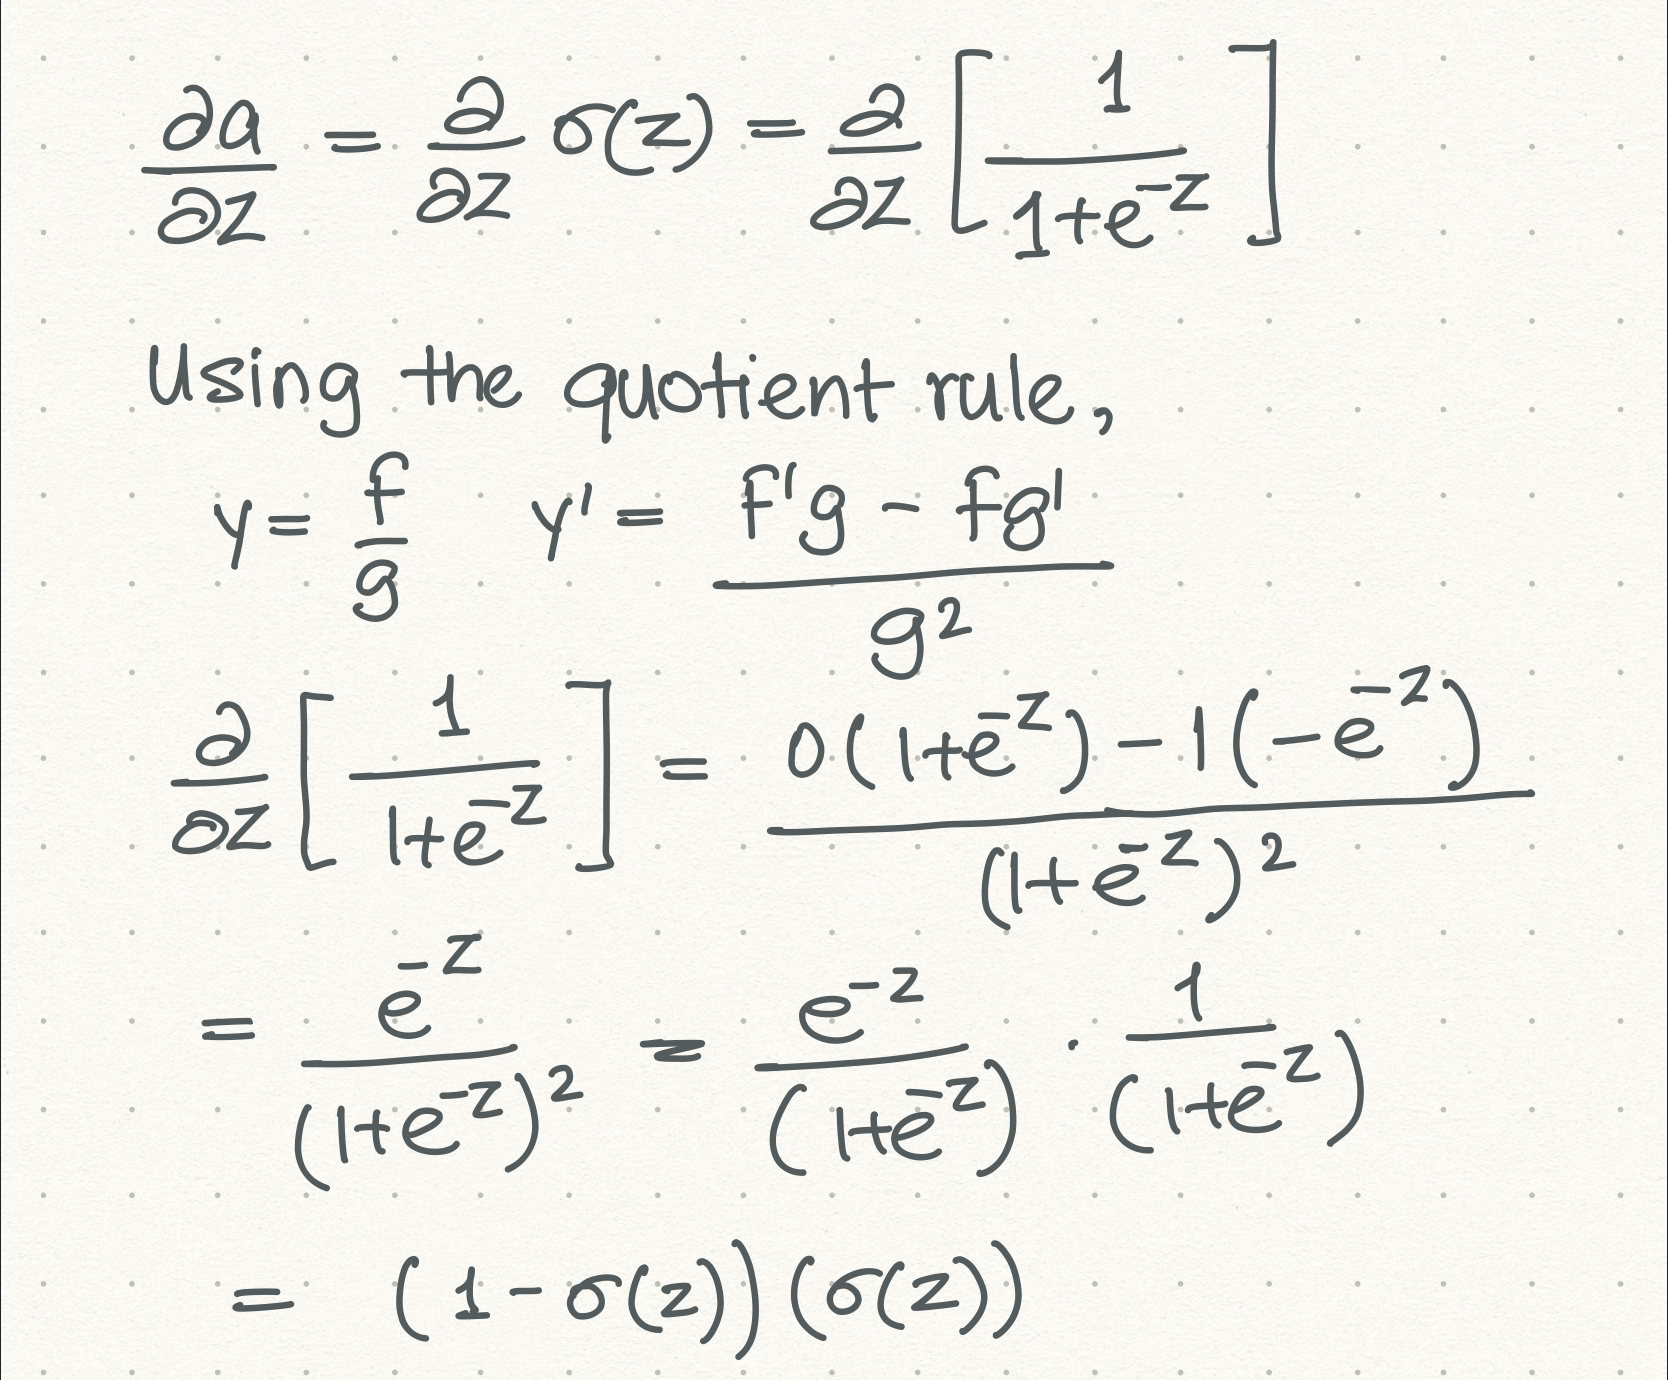 ∂a/∂z = ∂/∂z σ(z) = ∂/∂z [ 1/(1+e^{-z}) ]
Using the quotient rule,
y = f/g   y' = (f'g - fg')/g²
∂/∂z [ 1/(1+e^{-z}) ] = (0(1+e^{-z}) - 1(-e^{-z}))/(1+e^{-z})²
= e^{-z}/(1+e^{-z})² = e^{-z}/(1+e^{-z}) · 1/(1+e^{-z})
= (1 - σ(z))(σ(z))